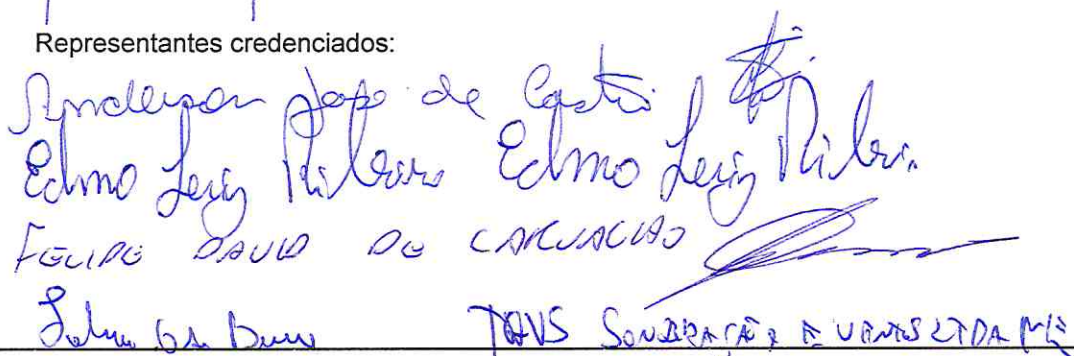 Representantes credenciados:
Anderson José de Castro
Edmo Luiz Ribeiro Edmo Luiz Ribeiro
FELIPE DAVID DE CARVALHO
SONORIZAÇÃO E EVENTOS LTDA ME